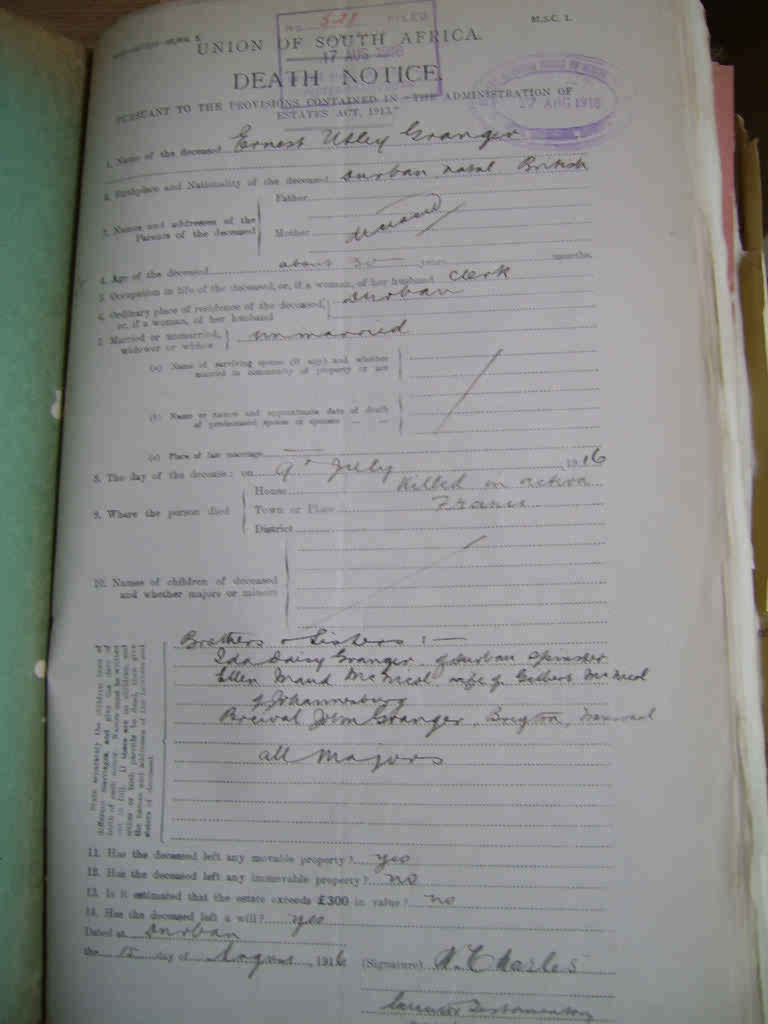 No. 528 FILED
M.S.C. 1.
UNION OF SOUTH AFRICA.
17 AUG 1916
DEATH NOTICE.
17 AUG 1916
PURSUANT TO THE PROVISIONS CONTAINED IN "THE ADMINISTRATION OF
ESTATES ACT, 1913."
1. Name of the deceased Ernest Utley Granger
2. Birthplace and Nationality of the deceased Durban Natal British
3. Names and addresses of the Parents of the deceased
Father
Mother deceased
4. Age of the deceased about 30 years months.
5. Occupation in life of the deceased, or, if a woman, of her husband Clerk
6. Ordinary place of residence of the deceased, or, if a woman, of her husband Durban
7. Married or unmarried, widower or widow unmarried
(a) Name of surviving spouse (if any) and whether married in community of property or not
(b) Name or names and approximate date of death of predeceased spouse or spouses
(c) Place of last marriage
8. The day of the decease: on 9th July 1916
9. Where the person died
House Killed in action
Town or Place France
District
10. Names of children of deceased and whether majors or minors
Brothers & Sisters :—
Ida Daisy Granger of Durban Spinster
Ellen Maud McNicol wife of Gilbert McNicol
of Johannesburg
Percival John Granger, Breyton, Transvaal
all Majors
State separately the children born of different marriages, and give the date of birth of each minor. Names must be written out in full. If there are no children, and either or both parents be dead, then give the names and addresses of the brothers and sisters of deceased.
11. Has the deceased left any movable property? yes
12. Has the deceased left any immovable property? no
13. Is it estimated that the estate exceeds £300 in value? no
14. Has the deceased left a will? yes
Dated at Durban
the 15 day of August, 1916 (Signature) A. Charles
Executor Testamentary